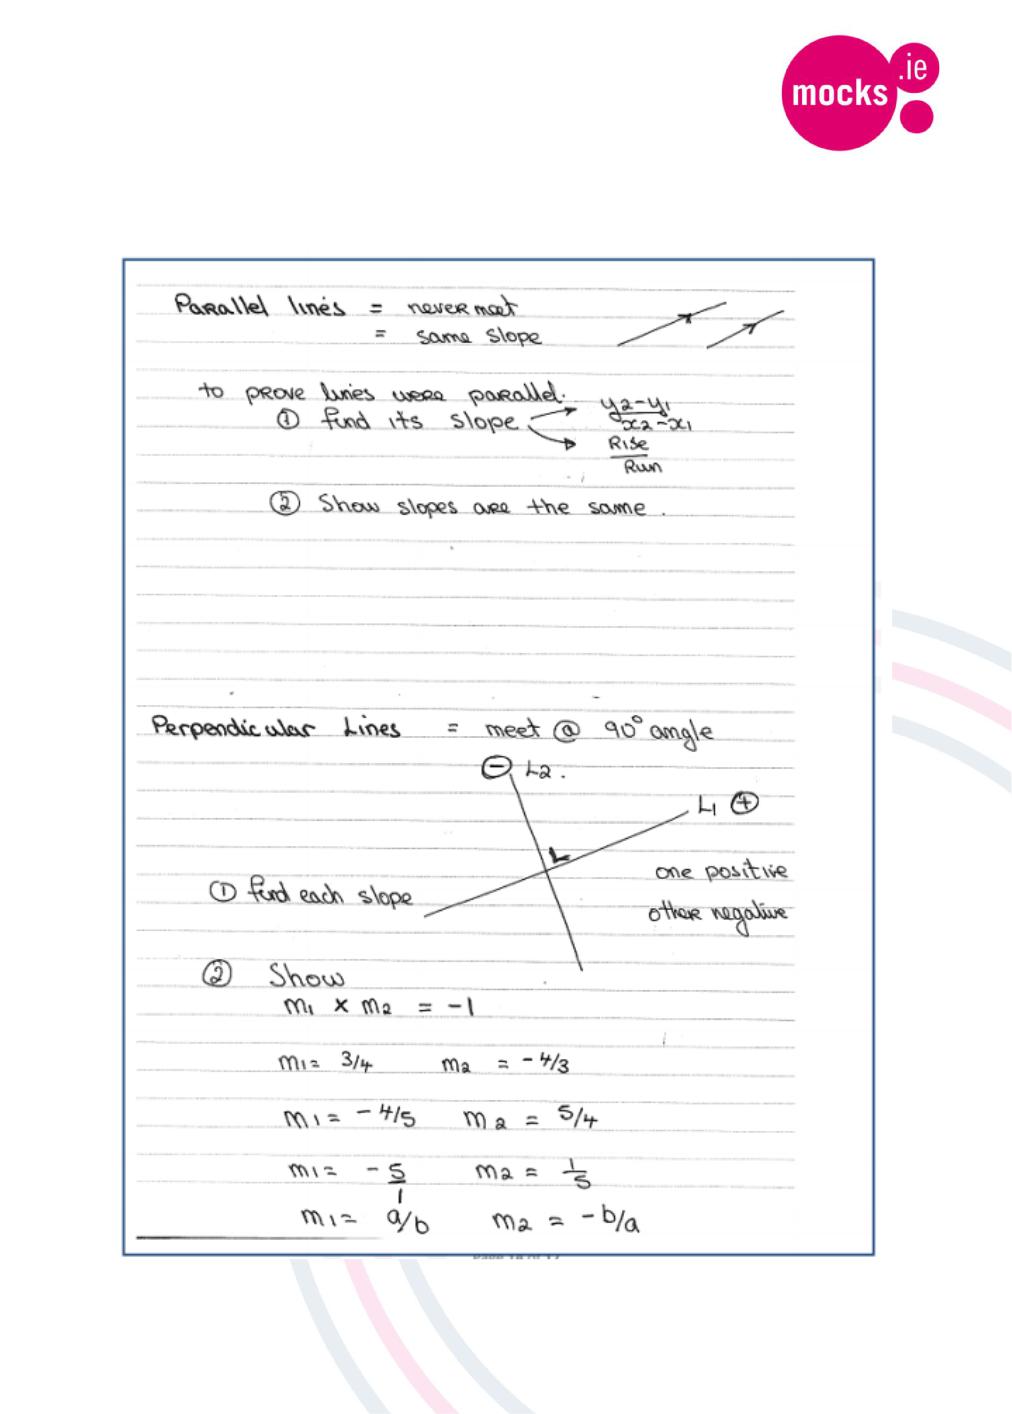 mocks .ie
Parallel lines = never meet
= same slope
to prove lines were parallel.
① find its slope y2-y1/x2-x1
Rise/Run
② Show slopes are the same.
Perpendicular Lines = meet @ 90° angle
⊖ L2.
L1 ⊕
one positive
① find each slope
other negative
② Show
m1 x m2 = -1
m1 = 3/4 m2 = -4/3
m1 = -4/5 m2 = 5/4
m1 = -5/1 m2 = 1/5
m1 = a/b m2 = -b/a